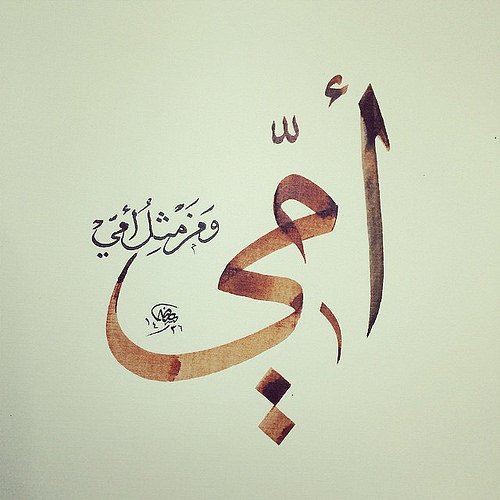 أُمِّي
وَمَنْ مِثْلُ أُمِّيْ
١٤٣٦